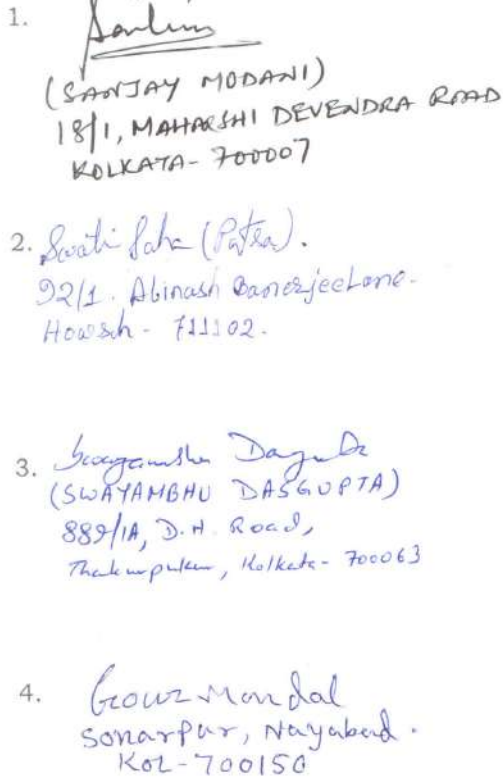 1.
(SANJAY MODANI)
18/1, MAHARSHI DEVENDRA ROAD
KOLKATA- 700007
2. Swati Saha (Patra).
92/1. Abinash Banerjee Lane.
Howrah - 711102.
3. Swayambhu Dasgupta
(SWAYAMBHU DASGUPTA)
889/1A, D.H. Road,
Thakurpukur, Kolkata- 700063
4. Gour Mondal
Sonarpur, Nayabad.
KOL-700150